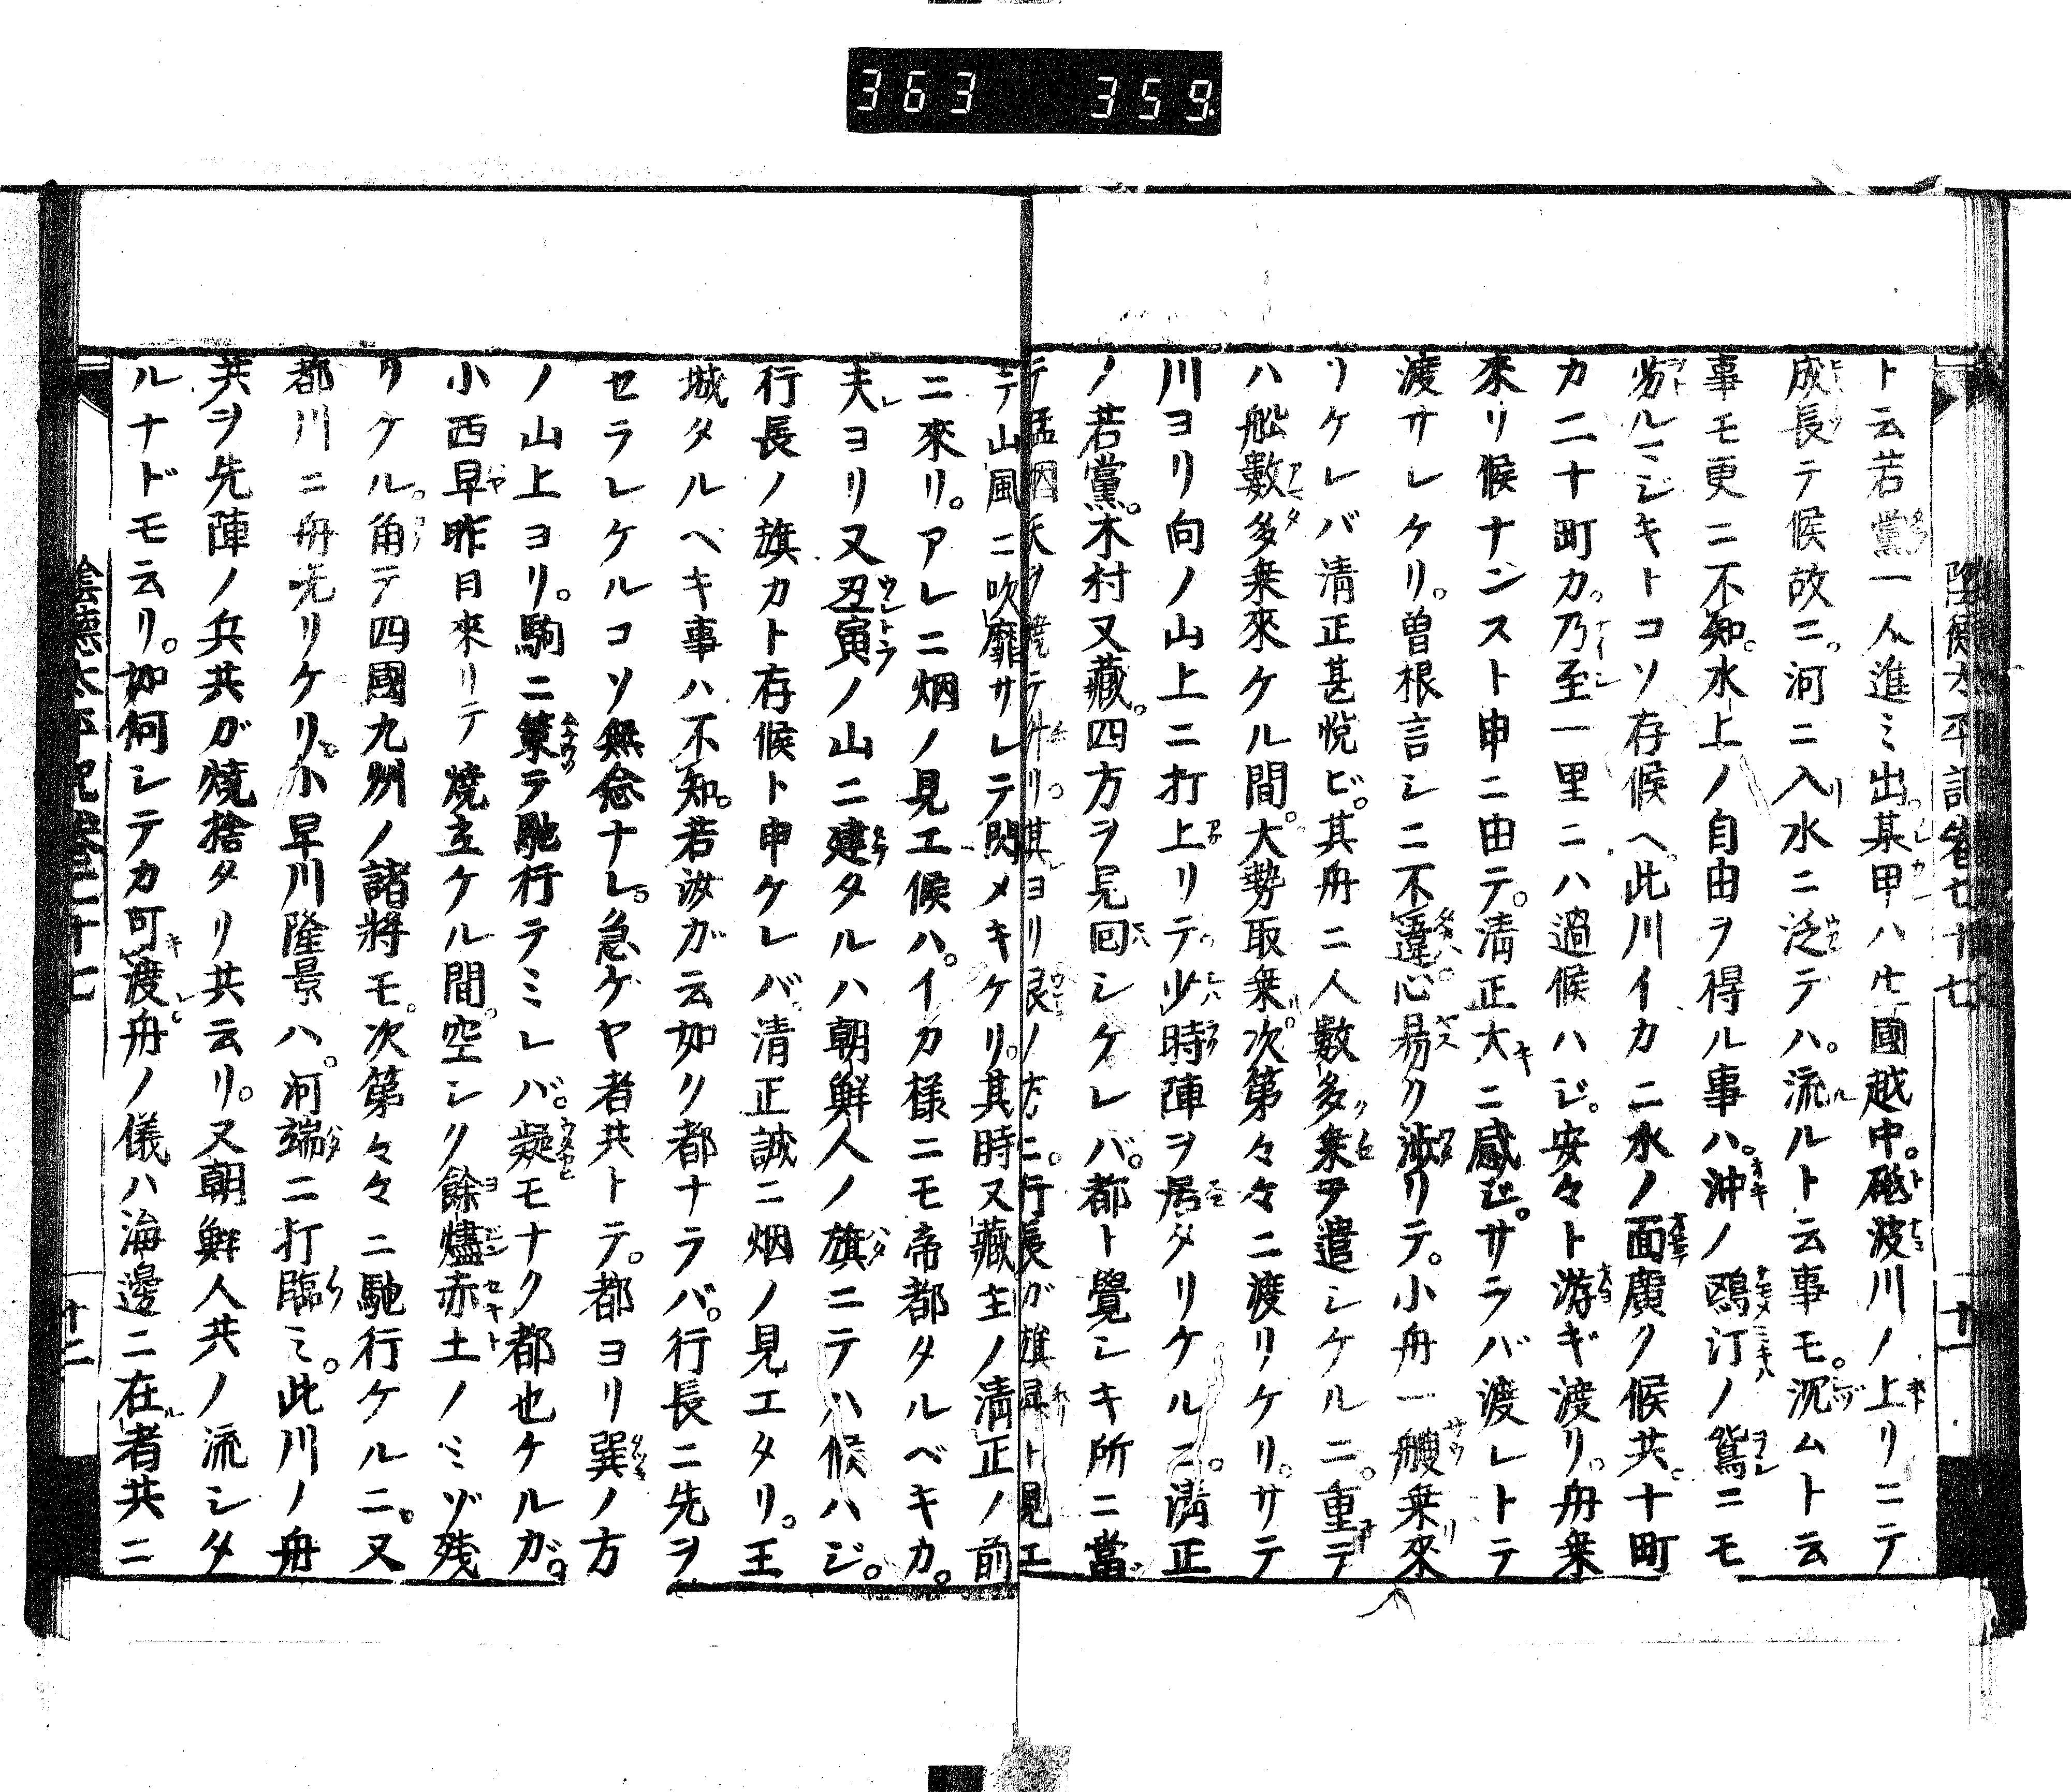 363 359
陰徳太平記巻七十七 十一
ト云若黨一人進ミ出。某甲ハ生國越中。礪波川ノ上リニテ
成長テ候故ニ。河ニ入水ニ泛テハ。流ルト云事モ。沉ムト云
事モ更ニ不知。水上ノ自由ヲ得ル事ハ。沖ノ鷗汀ノ鴛ニモ
劣ルマジキトコソ存候ヘ。此川イカニ水ノ面廣ク候共。十町
カ二十町カ。乃至一里ニハ過候ハジ。安々ト游ギ渡リ。舟乗
來リ候ナンスト申ニ由テ。清正大ニ感ジ。サラバ渡レトテ
渡サレケリ。曽根言シニ不違。心易ク游リテ。小舟一艘乗來
リケレバ清正甚悦ビ。其舟ニ人數多乗ヲ遣シケルニ。重テ
ハ舩數多乗來ケル間。大勢取乗。次第々々ニ渡リケリ。サテ
川ヨリ向ノ山上ニ打上リテ。少時陣ヲ居タリケルニ。清正
ノ若黨。木村又藏。四方ヲ見回シケレバ。都ト覺シキ所ニ當
テ猛烟天ヲ焼テ升リ。其ヨリ艮ノ方ニ。行長ガ旗ト見エ
テ山風ニ吹靡サレテ閃メキケリ。其時又藏主ノ清正ノ前
ニ來リ。アレニ烟ノ見エ候ハ。イカ様ニモ帝都タルベキカ。
夫ヨリ又丑寅ノ山ニ建タルハ朝鮮人ノ旗ニテハ候ハジ。
行長ノ旗カト存候ト申ケレバ。清正誠ニ烟ノ見エタリ。王
城タルベキ事ハ不知。若汝ガ云如ク都ナラバ。行長ニ先ヲ
セラレケルコソ無念ナレ。急ケヤ者共トテ。都ヨリ巽ノ方
ノ山上ヨリ。駒ニ策テ馳行テミレバ。疑モナク都也ケルガ。
小西早昨日來リテ焼立ケル間。空シク餘燼赤土ノミゾ殘
リケル。角テ四國九州ノ諸將モ。次第々々ニ馳行ケルニ。又
都川ニ舟无リケリ。小早川隆景ハ。河端ニ打臨ミ。此川ノ舟
共ヲ先陣ノ兵共ガ焼捨タリ共云リ。又朝鮮人共ノ流シタ
ルナドモ云リ。如何シテカ可渡。舟ノ儀ハ海邊ニ在者共ニ
陰徳太平記巻七十七 十二